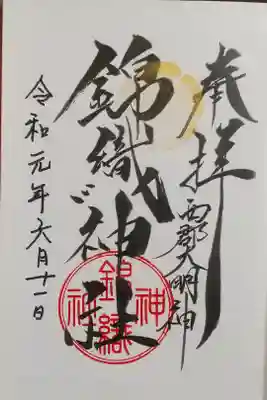 奉拝
西郡大明神
錦織神社
令和元年六月十一日
錦織神社